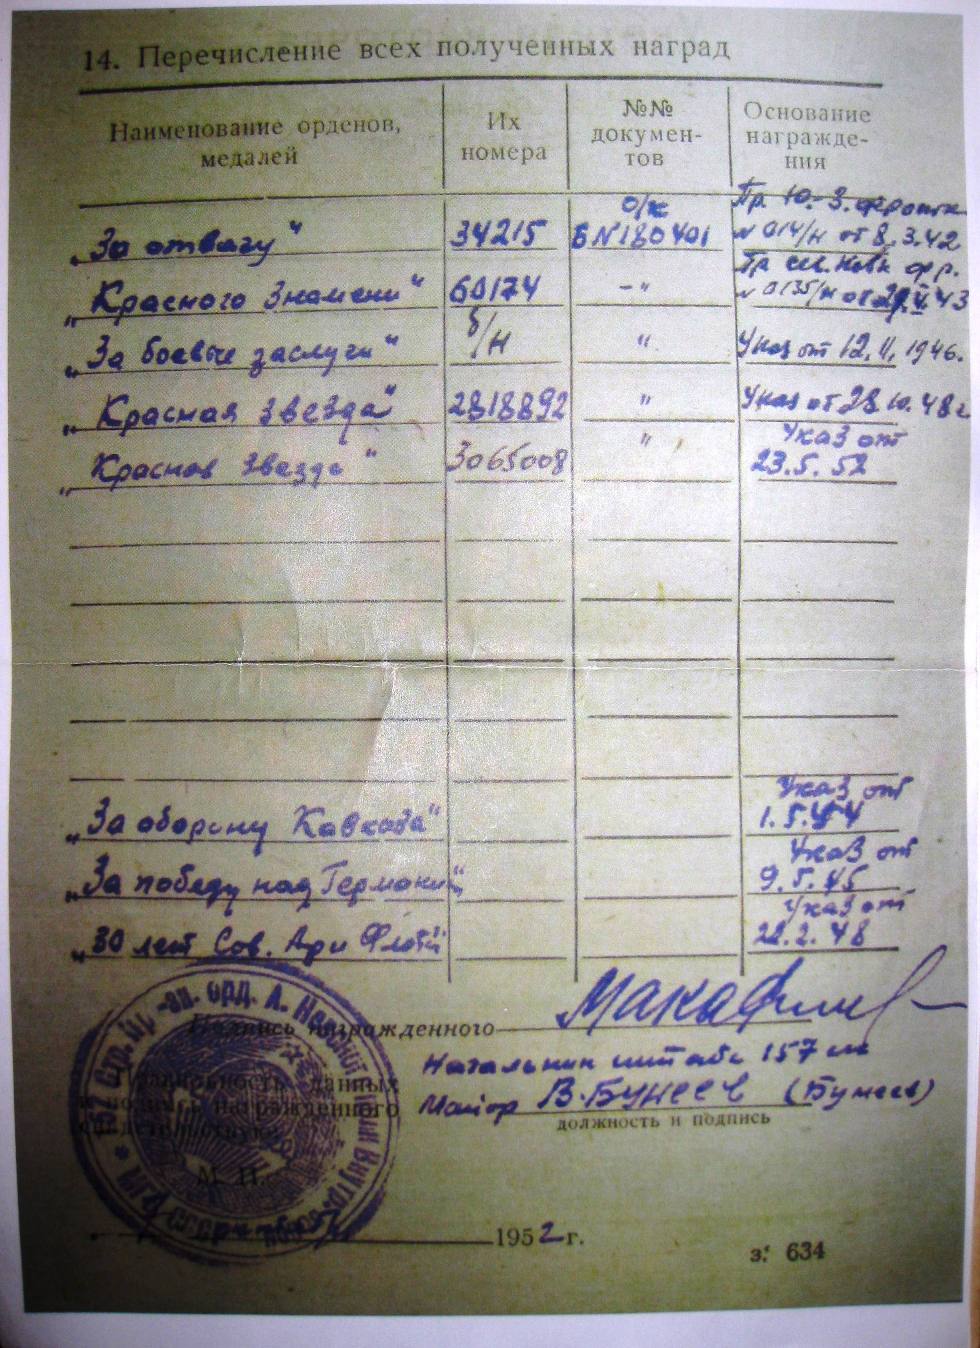 14. Перечисление всех полученных наград
Наименование орденов, медалей
Их номера
№№ докумен-тов
Основание награжде-ния
„За отвагу" 34215 о/к Б№180401 Пр. Ю.-З. фронта № 014/н от 8.3.42
„Красного Знамени" 60174 -" Пр. сев. Кавк. фр. № 0135/н от 43
„За боевые заслуги" б/н " Указ от 12.11.1946.
„Красная звезда" 2818892 " Указ от 28.10.48г
„Красная звезда" 3065008 " Указ от 23.5.52
„За оборону Кавказа" Указ от 1.5.44
„За победу над Германией" Указ от 9.5.45
„30 лет Сов. Ар и Флота" Указ от 22.2.48
Подпись награжденного
Начальник штаба 157
Майор В. Бунеев (Бунеев)
должность и подпись
данных
награжденного
М. П.
1952 г.
з. 634